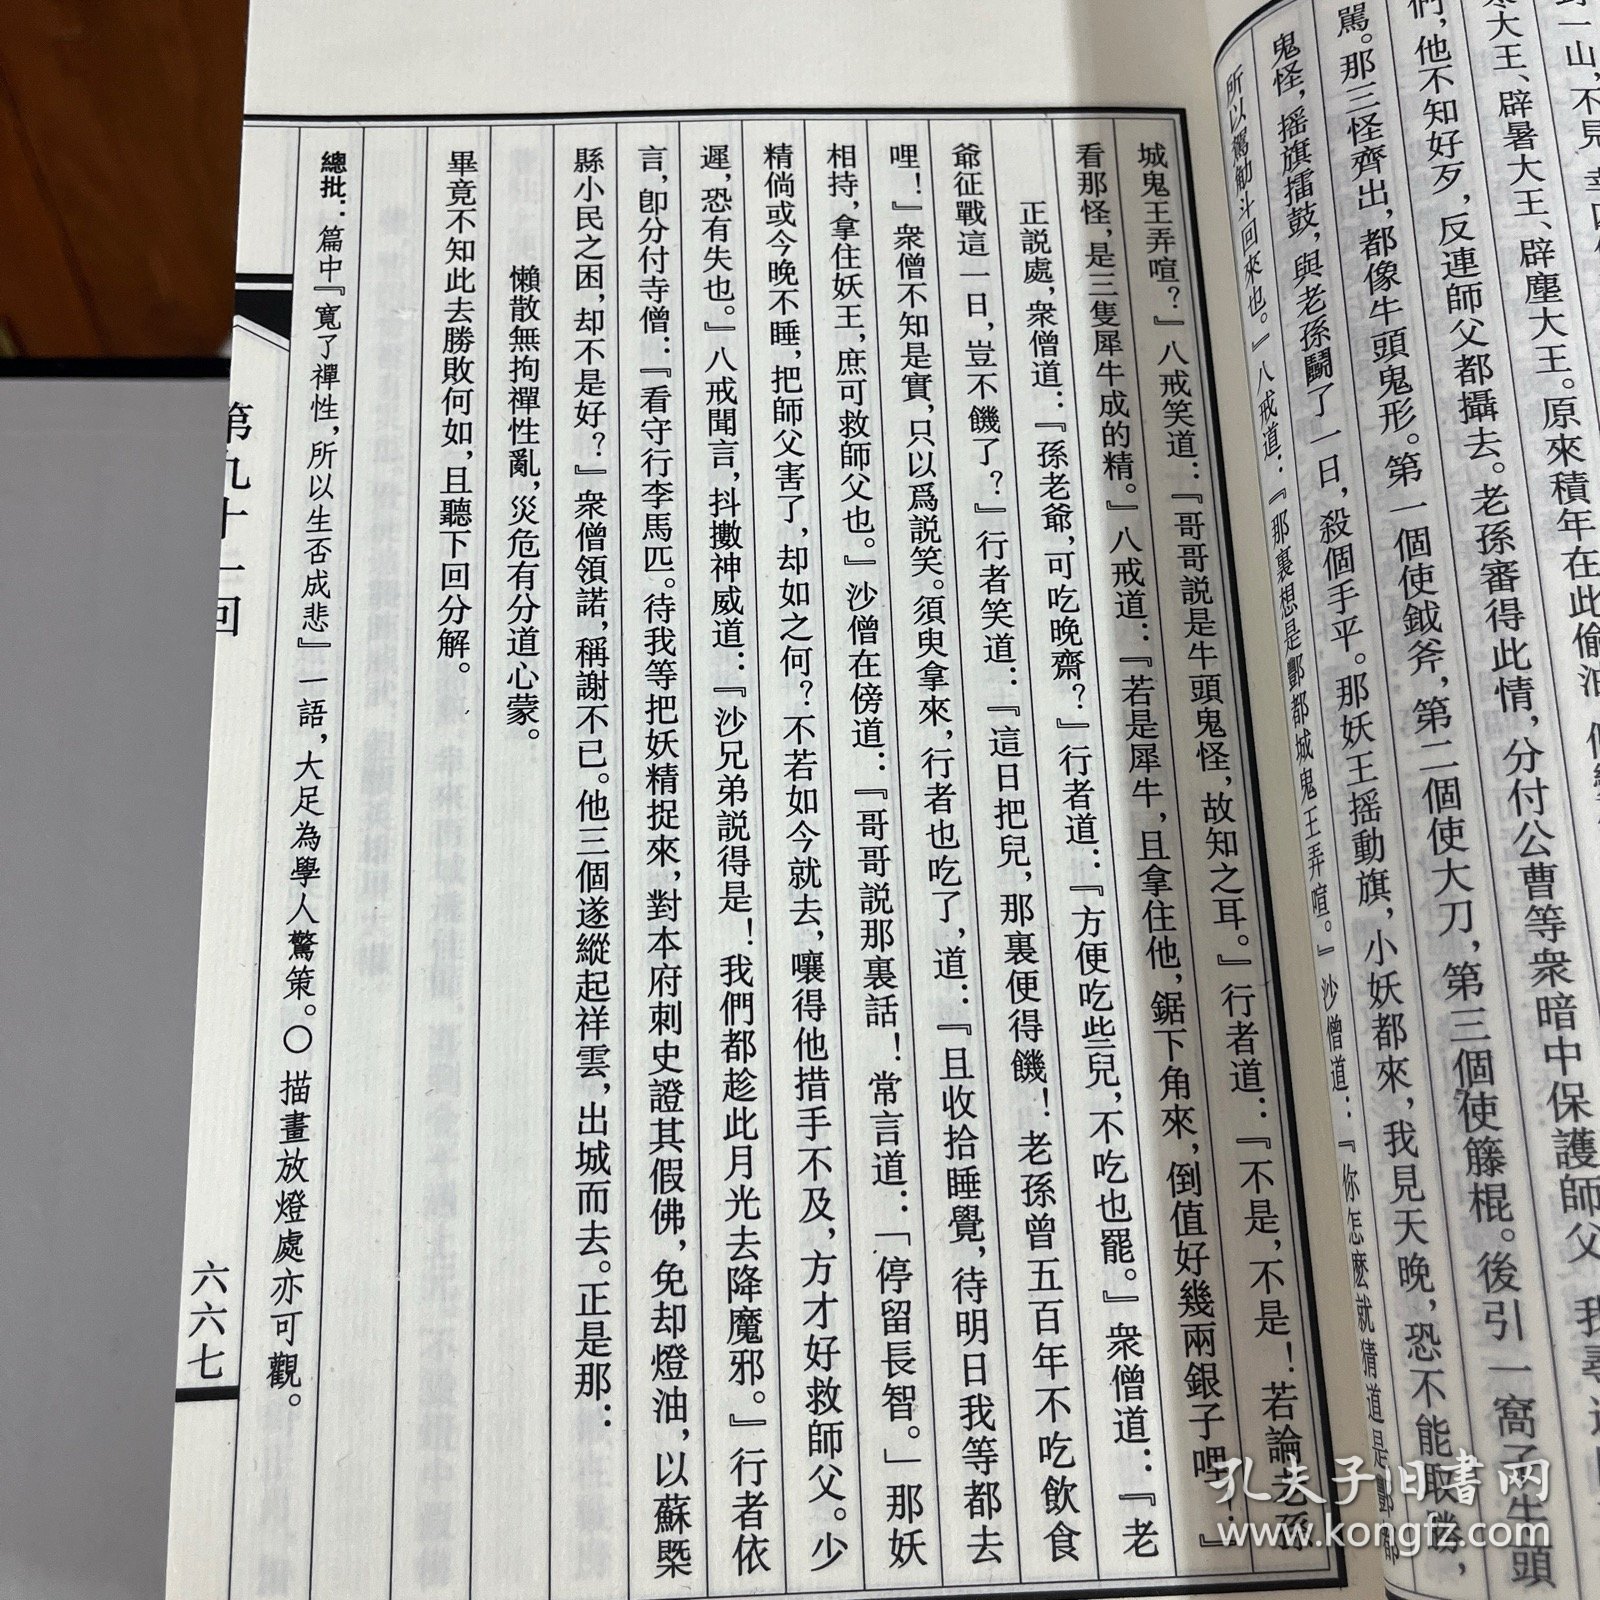 對一山，不見
寒大王、辟暑大王、辟塵大王。原來積年在此偷油
們，他不知好歹，反連師父都攝去。老孫審得此情，分付公曹等衆暗中保護師父，我尋
駡。那三怪齊出，都像牛頭鬼形。第一個使鉞斧，第二個使大刀，第三個使籐棍。後引一窩子牛頭
鬼怪，摇旗擂鼓，與老孫鬭了一日，殺個手平。那妖王摇動旗，小妖都來，我見天晚，恐不能取勝，
所以駕觔斗回來也。』八戒道：『那裏想是酆都城鬼王弄喧。』沙僧道：『你怎麽就猜道是酆都
城鬼王弄喧？』八戒笑道：『哥哥説是牛頭鬼怪，故知之耳。』行者道：『不是，不是！若論老孫
看那怪，是三隻犀牛成的精。』八戒道：『若是犀牛，且拿住他，鋸下角來，倒值好幾兩銀子哩！』
正説處，衆僧道：『孫老爺，可吃晚齋？』行者道：『方便吃些兒，不吃也罷。』衆僧道：『老
爺征戰這一日，豈不饑了？』行者笑道：『這日把兒，那裏便得饑！老孫曾五百年不吃飲食
哩！』衆僧不知是實，只以爲説笑。須臾拿來，行者也吃了，道：『且收拾睡覺，待明日我等都去
相持，拿住妖王，庶可救師父也。』沙僧在傍道：『哥哥説那裏話！常言道：「停留長智。」那妖
精倘或今晚不睡，把師父害了，却如之何？不若如今就去，嚷得他措手不及，方才好救師父。少
遲，恐有失也。』八戒聞言，抖擻神威道：『沙兄弟説得是！我們都趁此月光去降魔邪。』行者依
言，卽分付寺僧：『看守行李馬匹。待我等把妖精捉來，對本府刺史證其假佛，免却燈油，以蘇槩
縣小民之困，却不是好？』衆僧領諾，稱謝不已。他三個遂縱起祥雲，出城而去。正是那：
懶散無拘禪性亂，災危有分道心蒙。
畢竟不知此去勝敗何如，且聽下回分解。
總批：篇中『寬了禪性，所以生否成悲』一語，大足為學人驚策。〇描畫放燈處亦可觀。
第九十一回
六六七
孔夫子旧書网
www.kongfz.com